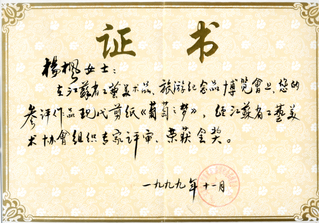 证书
楊楓女士：
在江苏省工藝美术品、旅游纪念品博覽會上，您的
参评作品现代剪纸《葡萄之梦》，经江苏省工藝美
术协會组织专家评审，荣获金奖。
一九九九年十一月